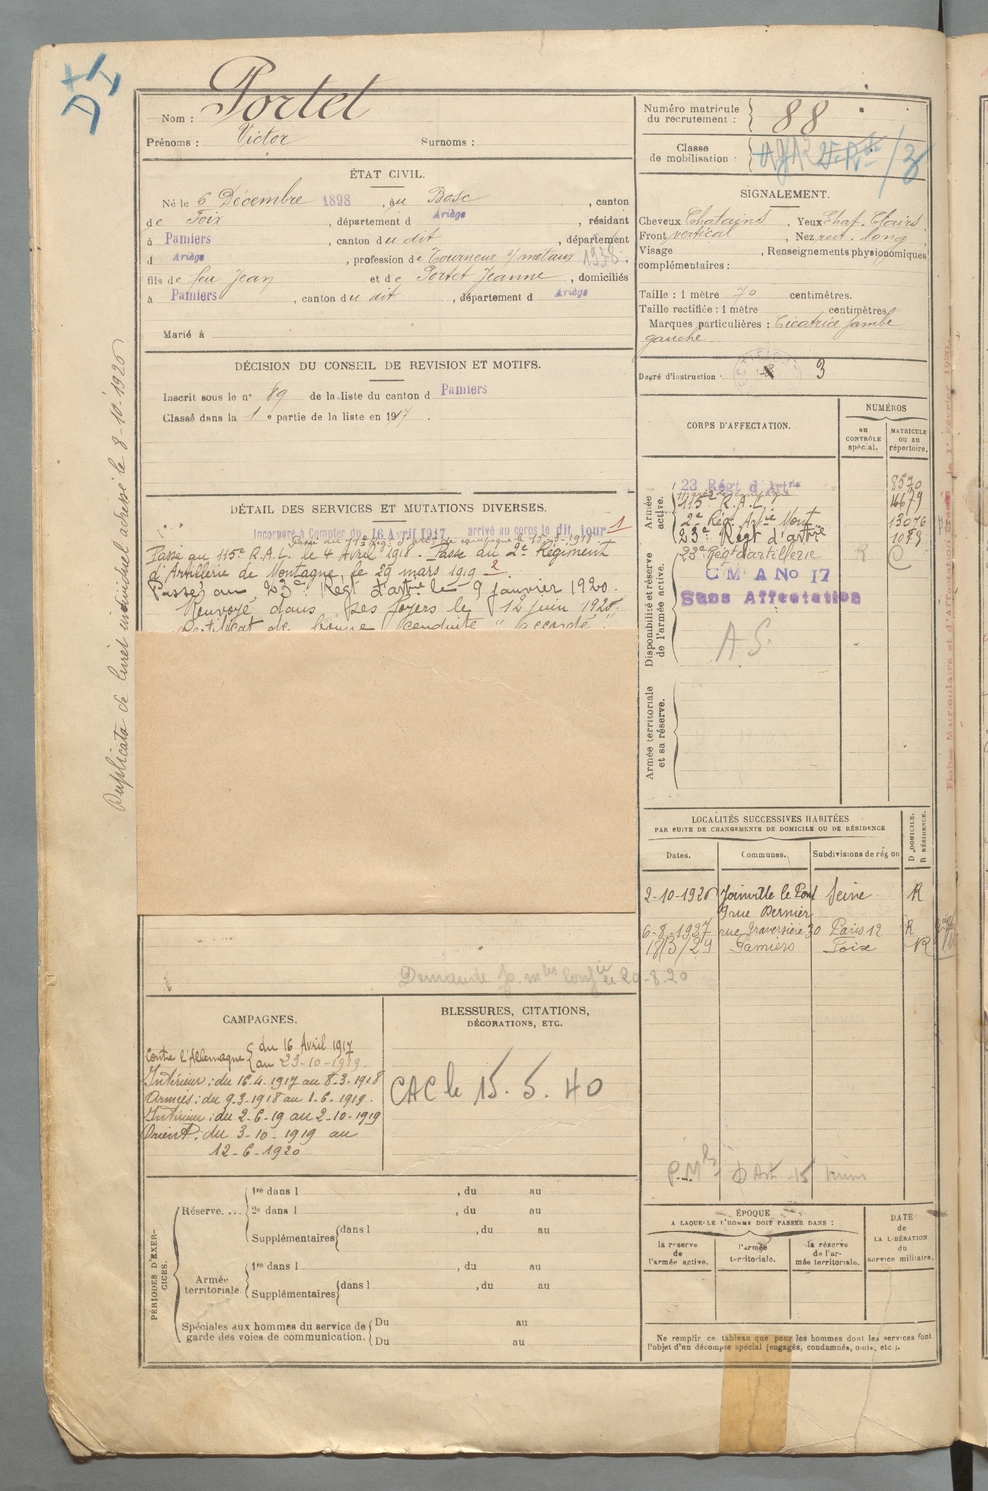 Duplicata de livret individuel adressé le 8-10-1926
Nom : Portet
Prénoms : Victor Surnoms :
ÉTAT CIVIL.
Né le 6 Décembre 1898, au Bosc, canton
de Foix, département d Ariège, résidant
à Pamiers, canton du dit, département
d Ariège, profession de Tourneur s/ métaux 1938,
fils de feu Jean et de Portet Jeanne, domiciliés
à Pamiers, canton du dit, département d Ariège
Marié à
DÉCISION DU CONSEIL DE REVISION ET MOTIFS.
Inscrit sous le n° 89 de la liste du canton d Pamiers
Classé dans la 1e partie de la liste en 1917.
DÉTAIL DES SERVICES ET MUTATIONS DIVERSES.
Incorporé à Compter du 16 Avril 1917 arrivé au corps le dit jour 1
Passé au 115e R.A.L. le 4 Avril 1918. Passé du 2e Régiment
d'Artillerie de Montagne, le 29 mars 1919 2
Passé au 23e Régt d'artrie le 9 janvier 1920.
Renvoyé dans ses foyers le 12 juin 1920.
Certificat de bonne conduite "Accordé".
Demande p. 20-8.20
CAMPAGNES.
Contre l'Allemagne { du 16 Avril 1917
au 23-10-1919.
Intérieur : du 16.4.1917 au 8.3.1918
Armées : du 9.3.1918 au 1.6.1919.
Intérieur : du 2-6-19 au 2-10-1919
Orient : du 3-10-1919 au
12-6-1920
BLESSURES, CITATIONS,
DÉCORATIONS, ETC.
CAC le 15.5.40
PÉRIODES D'EXERCICES.
Réserve.... 1re dans l , du au
2e dans l , du au
Supplémentaires dans l , du au
Armée territoriale. 1re dans l , du au
Supplémentaires dans l , du au
Spéciales aux hommes du service de Du au
garde des voies de communication. Du au
Numéro matricule
du recrutement : 88
Classe
de mobilisation :
SIGNALEMENT.
Cheveux Chatains, Yeux Chat. Clairs
Front vertical, Nez rect. long
Visage , Renseignements physionomiques
complémentaires :
Taille : 1 mètre 70 centimètres.
Taille rectifiée : 1 mètre centimètres.
Marques particulières : Cicatrice jambe
gauche.
Degré d'instruction : 3
CORPS D'AFFECTATION.
NUMÉROS
AU CONTRÔLE spécial.
MATRICULE ou au répertoire.
Armée active.
23 Régt d'Artrie 8520
115e R.A.L. 14679
2e Rég. Artie Mont 13076
23e Régt d'artrie 1073
Disponibilité et réserve de l'armée active.
23e Régt d'artillerie R C
C M A No 17
Sans Affectation
A.S.
Armée territoriale et sa réserve.
LOCALITÉS SUCCESSIVES HABITÉES
PAR SUITE DE CHANGEMENTS DE DOMICILE OU DE RÉSIDENCE
Dates. Communes. Subdivisions de région D DOMICILE. R RÉSIDENCE.
2-10-1926 Joinville le Pont Seine R
9 rue Dernier
6-8-1927 rue Traversière 30 Paris 12 R
18/3/29 Pamiers Foix R
ÉPOQUE
A LAQUELLE L'HOMME DOIT PASSER DANS :
la réserve de l'armée active.
l'armée territoriale.
la réserve de l'armée territoriale.
DATE de LA LIBÉRATION du service militaire.
Ne remplir ce tableau que pour les hommes dont les services font
l'objet d'un décompte spécial (engagés, condamnés, omis, etc.).